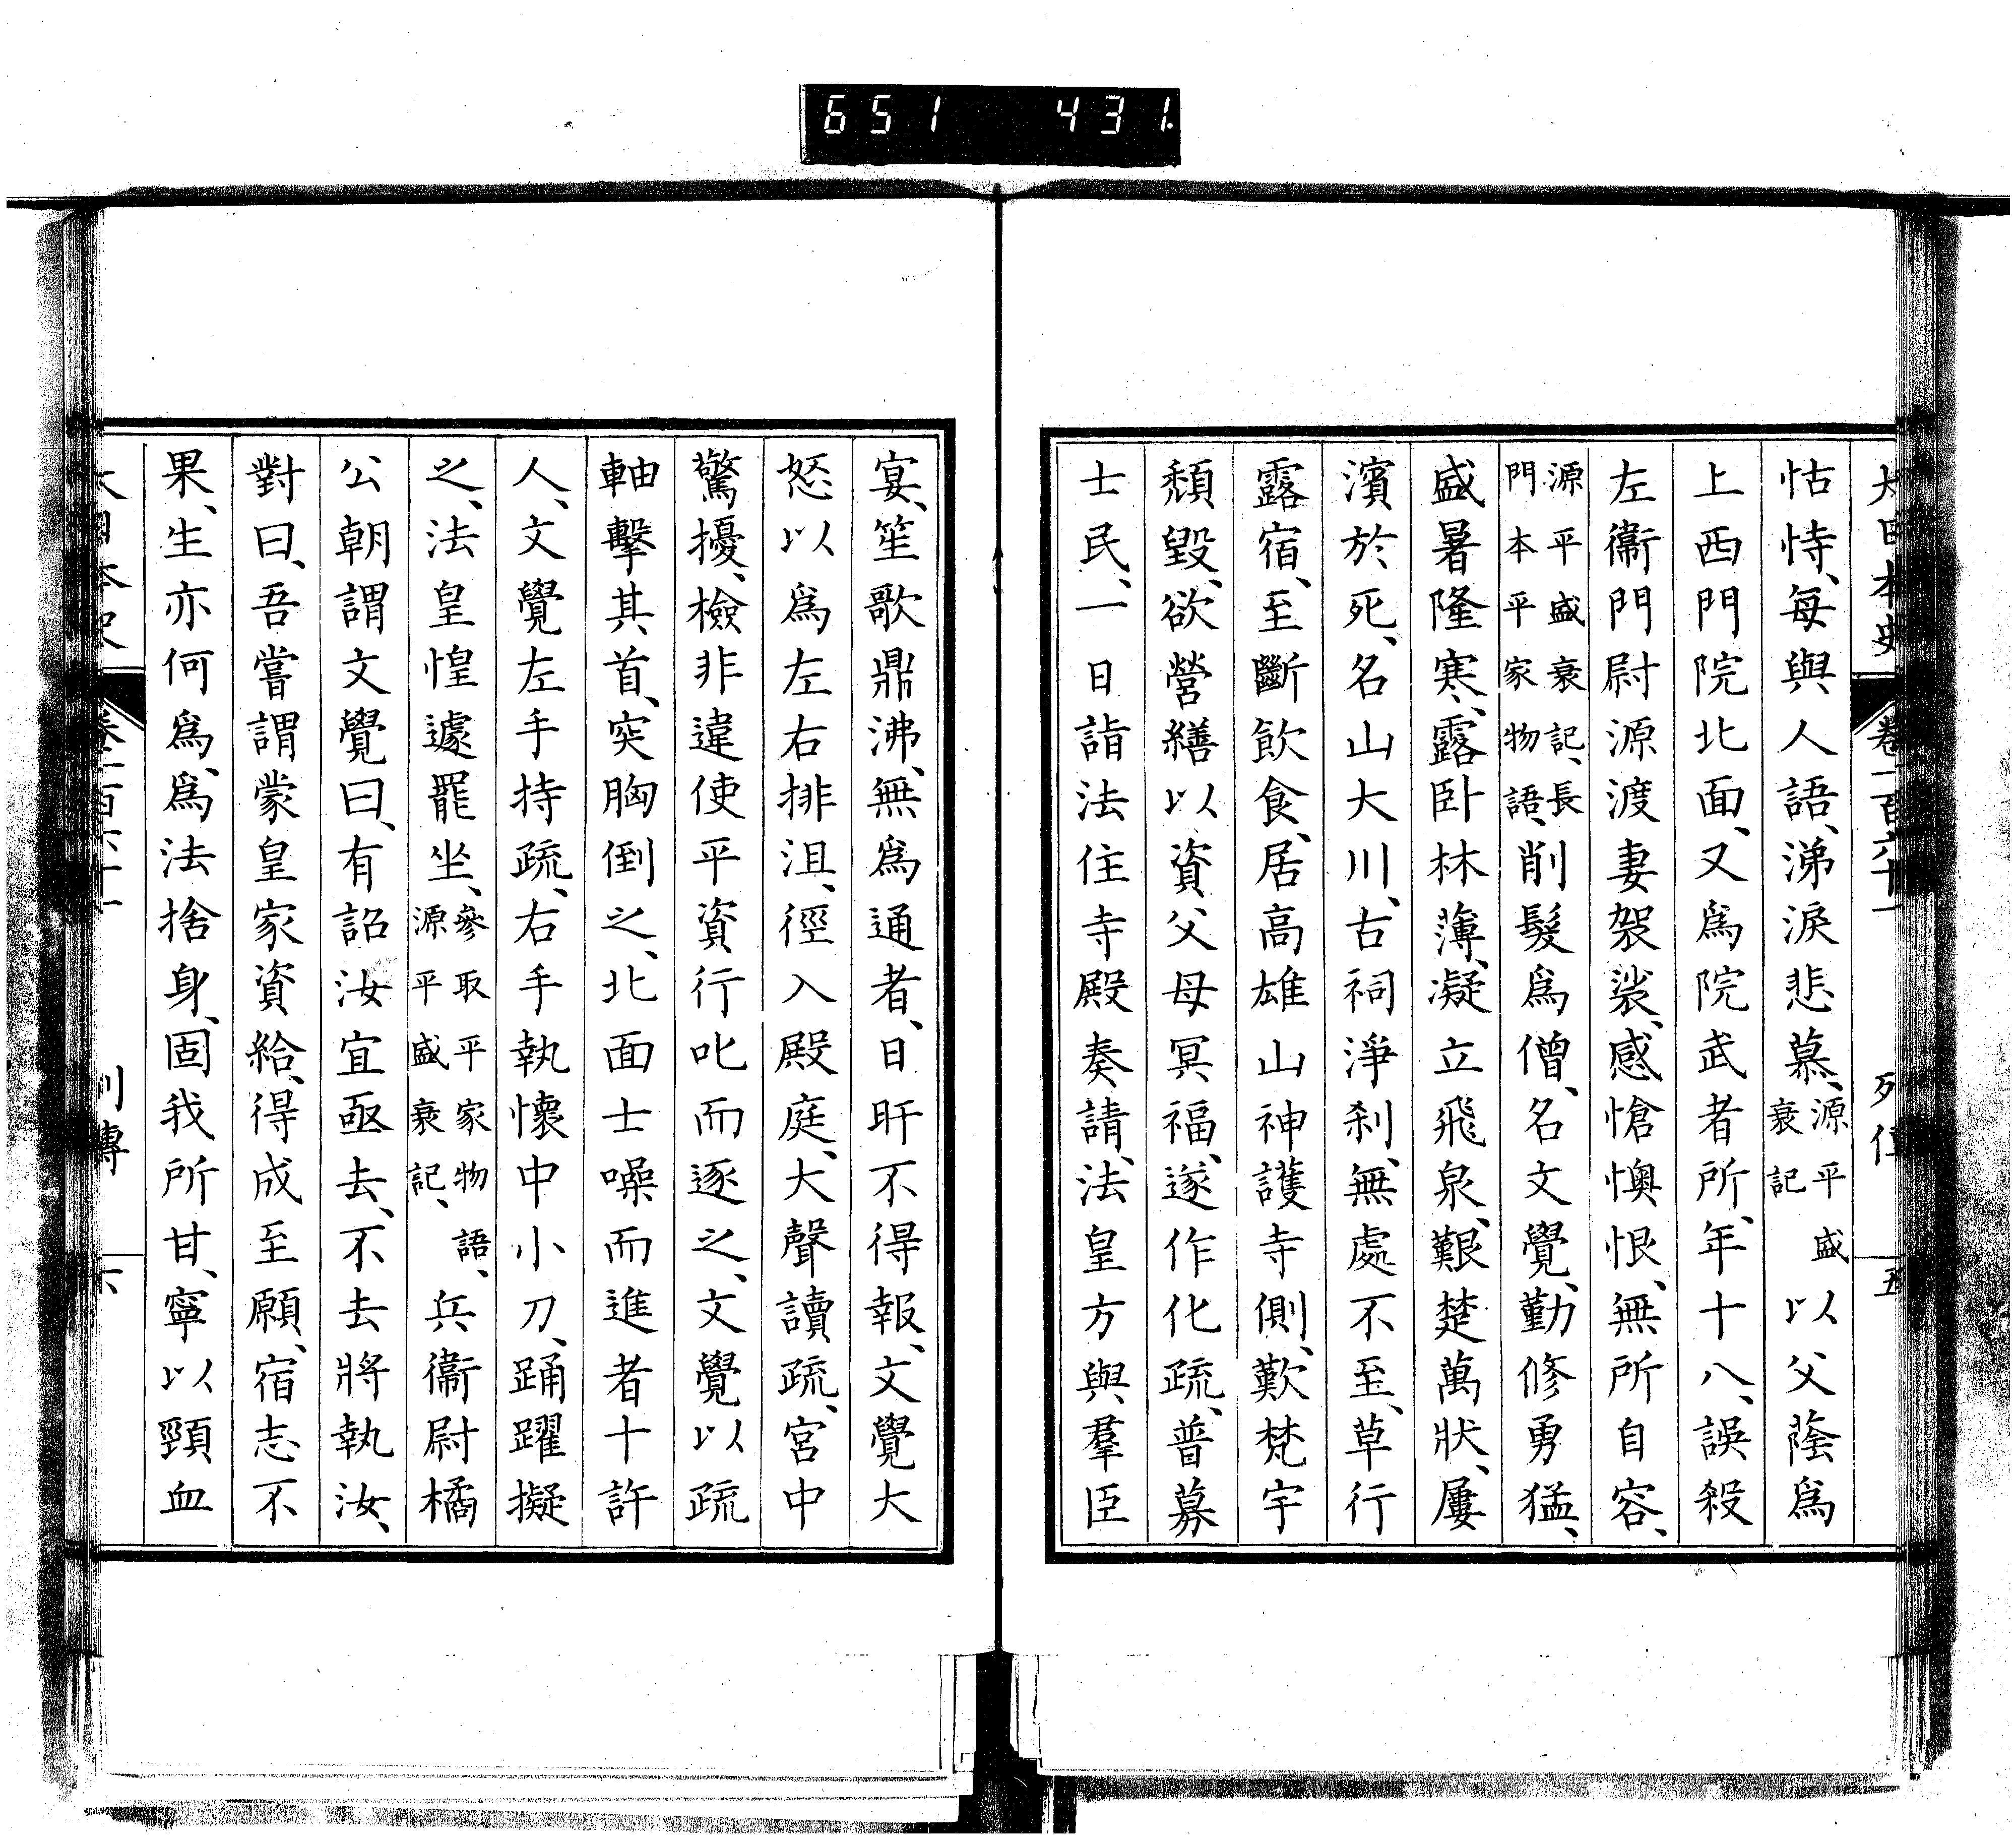 651 431
大日本史 卷一百六十一 列傳 五
怙恃、每與人語、涕淚悲慕、源平盛衰記以父蔭爲
上西門院北面、又爲院武者所、年十八、誤殺
左衞門尉源渡妻袈裟、感愴懊恨、無所自容、
源平盛衰記、長門本平家物語、削髮爲僧、名文覺、勤修勇猛、
盛暑隆寒、露臥林薄、凝立飛泉、艱楚萬狀、屢
濱於死、名山大川、古祠淨刹、無處不至、草行
露宿、至斷飮食、居高雄山神護寺側、歎梵宇
頹毀、欲營繕以資父母冥福、遂作化疏、普募
士民、一日詣法住寺殿奏請、法皇方與羣臣
宴、笙歌鼎沸、無爲通者、日旰不得報、文覺大
怒以爲左右排沮、徑入殿庭、大聲讀疏、宮中
驚擾、檢非違使平資行叱而逐之、文覺以疏
軸擊其首、突胸倒之、北面士噪而進者十許
人、文覺左手持疏、右手執懷中小刀、踊躍擬
之、法皇惶遽罷坐、參取平家物語、源平盛衰記、兵衞尉橘
公朝謂文覺曰、有詔汝宜亟去、不去將執汝、
對曰、吾嘗謂蒙皇家資給、得成至願、宿志不
果、生亦何爲、爲法捨身、固我所甘、寧以頸血
大日本史 卷一百六十一 列傳 六